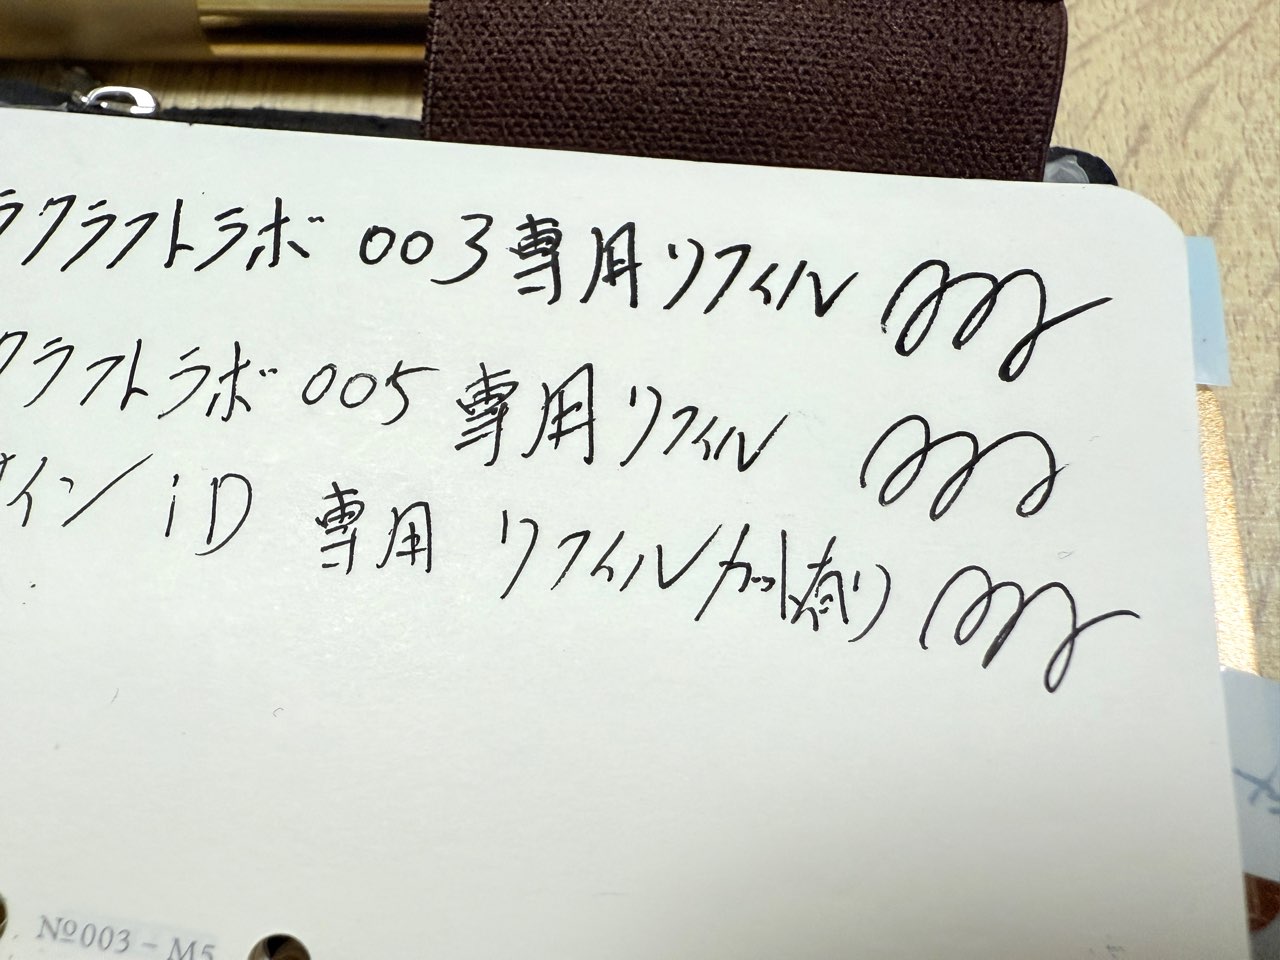 ラクラフトラボ 003 専用リフィル
クラフトラボ 005 専用リフィル
サイン iD 専用 リフィルカット有り
№003 - M5